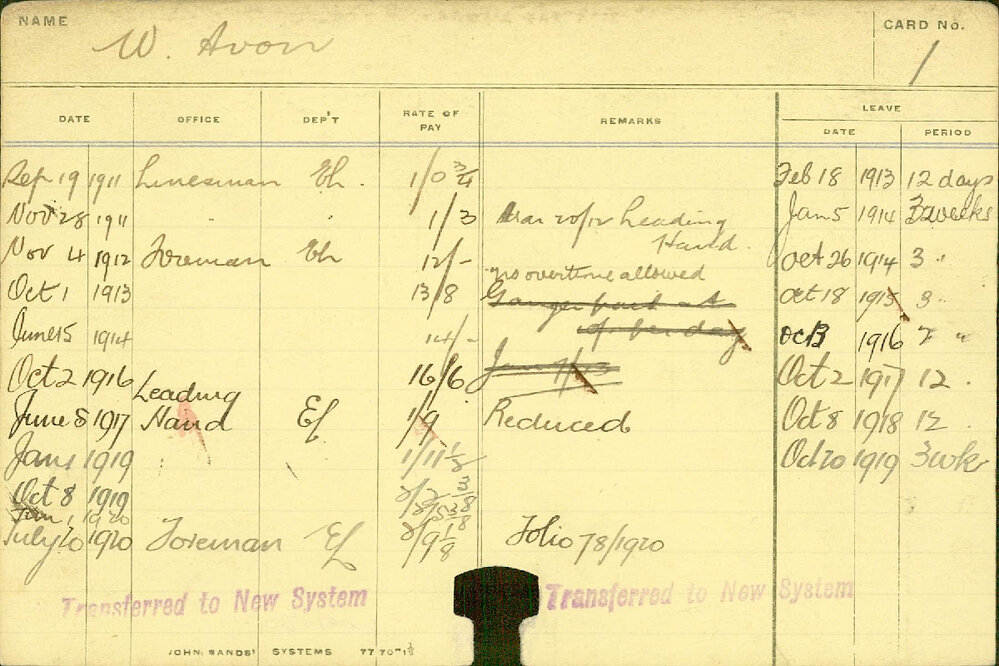 NAME W. Avon CARD No. 1
LEAVE
DATE OFFICE DEP'T RATE OF PAY REMARKS DATE PERIOD
Sep 19 1911 Linesman 1/0 3/4 Feb 18 1913 12 days
Nov 28 1911 1/3 20/12 Leading Jan 5 1914 3 weeks
Hand.
Nov 4 1912 Foreman 12/- Oct 26 1914 3 "
no overtime allowed
Oct 1 1913 13/8 Ganger Oct 18 1915 3 "
June 15 1914 14/- of per day Oct 3 1916 "
Oct 2 1916 16/6 Oct 2 1917 12 "
Leading
June 8 1917 Hand Ef 1/9 Reduced Oct 8 1918 12 "
Jan 1 1919 1/11 1/2 Oct 20 1919 3 wk
Oct 8 1919 2/2 3/8
Jan 1 1920
July 20 1920 Foreman Ef 2/9 1/8 Folio 78/1920
Transferred to New System Transferred to New System
JOHN SANDS' SYSTEMS